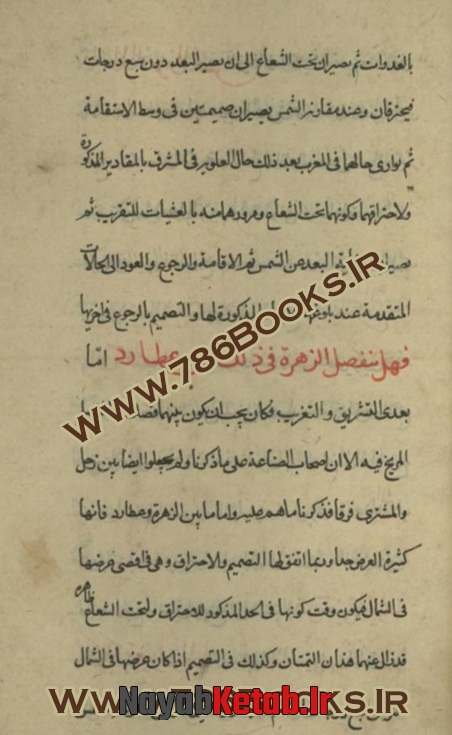 بالغدوات ثم يصيران تحت الشعاع الى ان يصير البعد دون سبع درجات
فيحترقان وعند مقارنة الشمس يصيران صميمين في وسط الاستقامة
ثم يوازى حالهما في المغرب بعد ذلك حال العلوية في المشرق بالمقادير المذكورة
ولاحتراقهما وكونهما تحت الشعاع ومرورهما منه بالعشيات للتغريب ثم
البعد عن الشمس ثم الاقامة والرجوع والعود الى الحالات
المتقدمة عند المذكورة لها والتصميم بالرجوع في اخرها
فهل تنفصل الزهرة في ذلك عطارد امّا
بعدى التشريق والتغريب فكان يجب ان يكون بينهما
المريخ فيه الا ان اصحاب الصناعة على ما ذكرنا ولم يجعلوا ايضا بين زحل
والمشترى فرقا فذكرنا ما هم عليه واما ما بين الزهرة وعطارد فانها
كثيرة العرض جدا وربما اتفق لها التصميم والاحتراق وهى في اقصى عرضها
في الشمال فيكون وقت كونها في الحد المذكور للاحتراق وتحت الشعاع ظاهرة
قد زال عنها هذان النعتان وكذلك في التصميم اذا كان عرضها في الشمال
WWW.786BOOKS.IR
WWW.786BOOKS.IR
NayabKetab.Ir